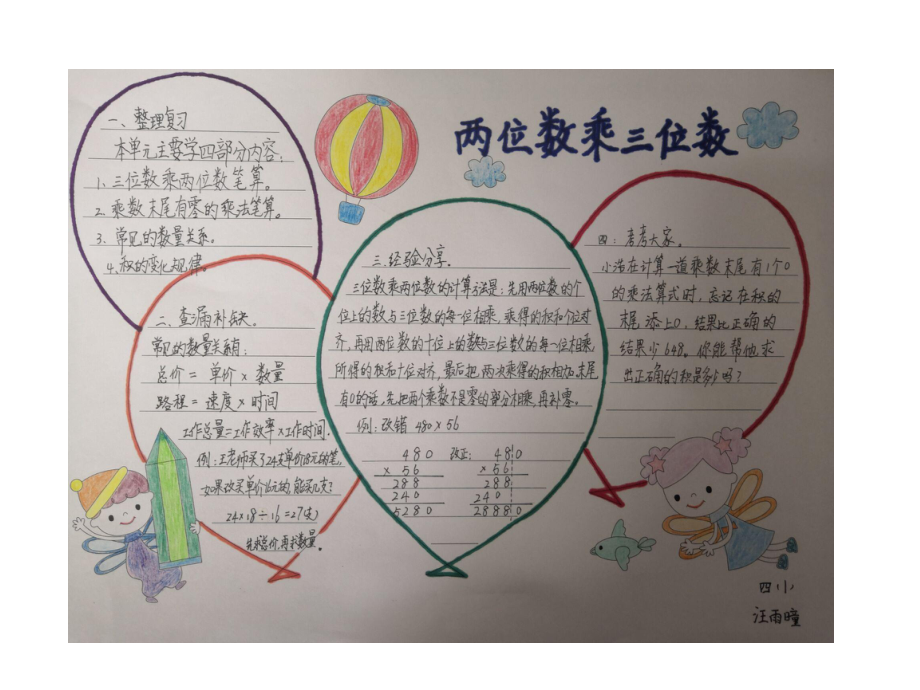 两位数乘三位数
一、整理复习
本单元主要学四部分内容:
1. 三位数乘两位数笔算。
2. 乘数末尾有零的乘法笔算。
3. 常见的数量关系。
4. 积的变化规律。
二、查漏补缺。
常见的数量关系有:
总价 = 单价 × 数量
路程 = 速度 × 时间
工作总量=工作效率×工作时间.
例:王老师买了24支单价18元的笔,
如果改买单价16元的,能买几支?
24×18÷16=27(支)
先求总价,再求数量。
三、经验分享。
三位数乘两位数的计算方法是:先用两位数的个
位上的数与三位数的每一位相乘,乘得的积和个位对
齐,再用两位数的十位上的数与三位数的每一位相乘,
所得的积和十位对齐,最后把两次乘得的积相加。末尾
有0的话,先把两个乘数不是零的部分相乘,再补零。
例:改错 480×56
480 改正: 480
×56 ×56
288 288
240 240
5280 28880
四:考考大家。
小浩在计算一道乘数末尾有1个0
的乘法算式时,忘记在积的
末尾添上0,结果比正确的
结果少648。你能帮他求
出正确的积是多少吗?
四(1)
汪雨瞳